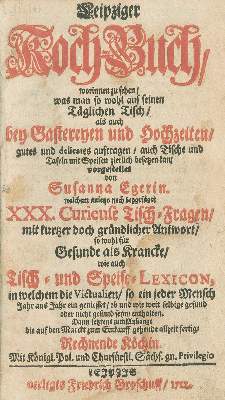 Leipziger
Koch-Buch/
worinnen zu sehen/
was man so wohl auf seinen
Täglichen Tisch/
als auch
bey Gastereyen und Hochzeiten/
gutes und delicates auftragen/ auch Tische und
Tafeln mit Speisen zierlich besetzen kan/
vorgestellet
von
Susanna Egerin.
welchem anietzo noch beygefüget
XXX. Curieuse Tisch-Fragen/
mit kurtzer doch gründlicher Antwort/
so wohl für
Gesunde als Krancke/
wie auch
Tisch- und Speise-LEXICON,
in welchem die Victualien/ so ein jeder Mensch
Jahr aus Jahr ein geniesset/ ob und wie weit selbige gesund
oder nicht gesund seyn/ enthalten.
Dann letzens zum
die auf den Marckt zum Einkauff gehende allzeit fertig/
Rechnende Köchin.
Mit Königl. Pol. und Churfürstl. Sächs. gn. Privilegio
LEIPZIG
verlegts Friedrich Groschuff/ 1712.